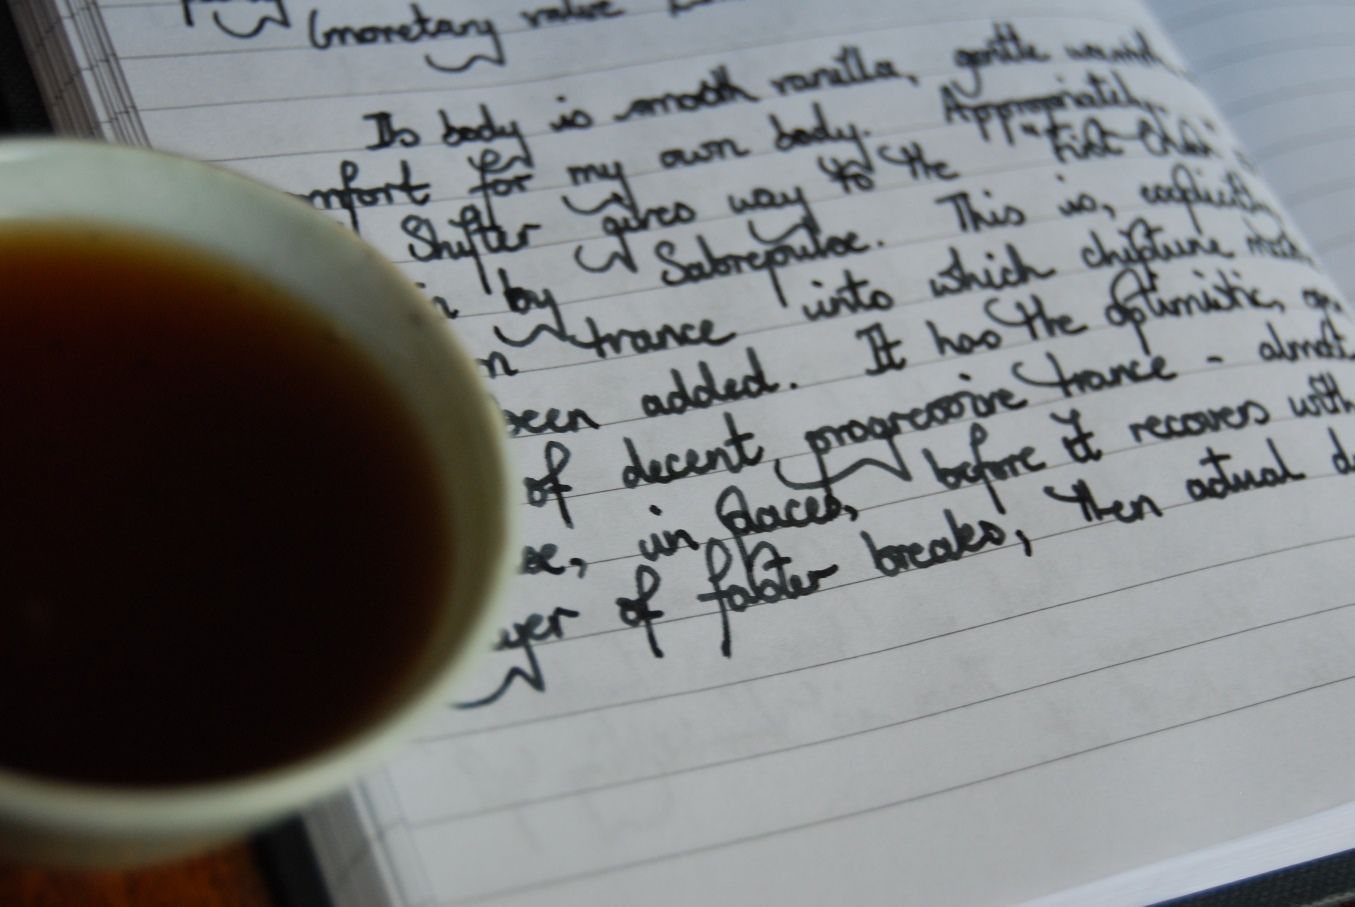 (monetary value
Its body is smooth vanilla, gentle
mfort for my own body. Appropriately,
Shifter gives way to the "First Crush"
by Sabrepulse. This is, explicitly
trance into which chiptune
been added. It has the optimistic,
of decent progressive trance - almost
se, in places, before it recovers with
yer of faster breaks; then actual